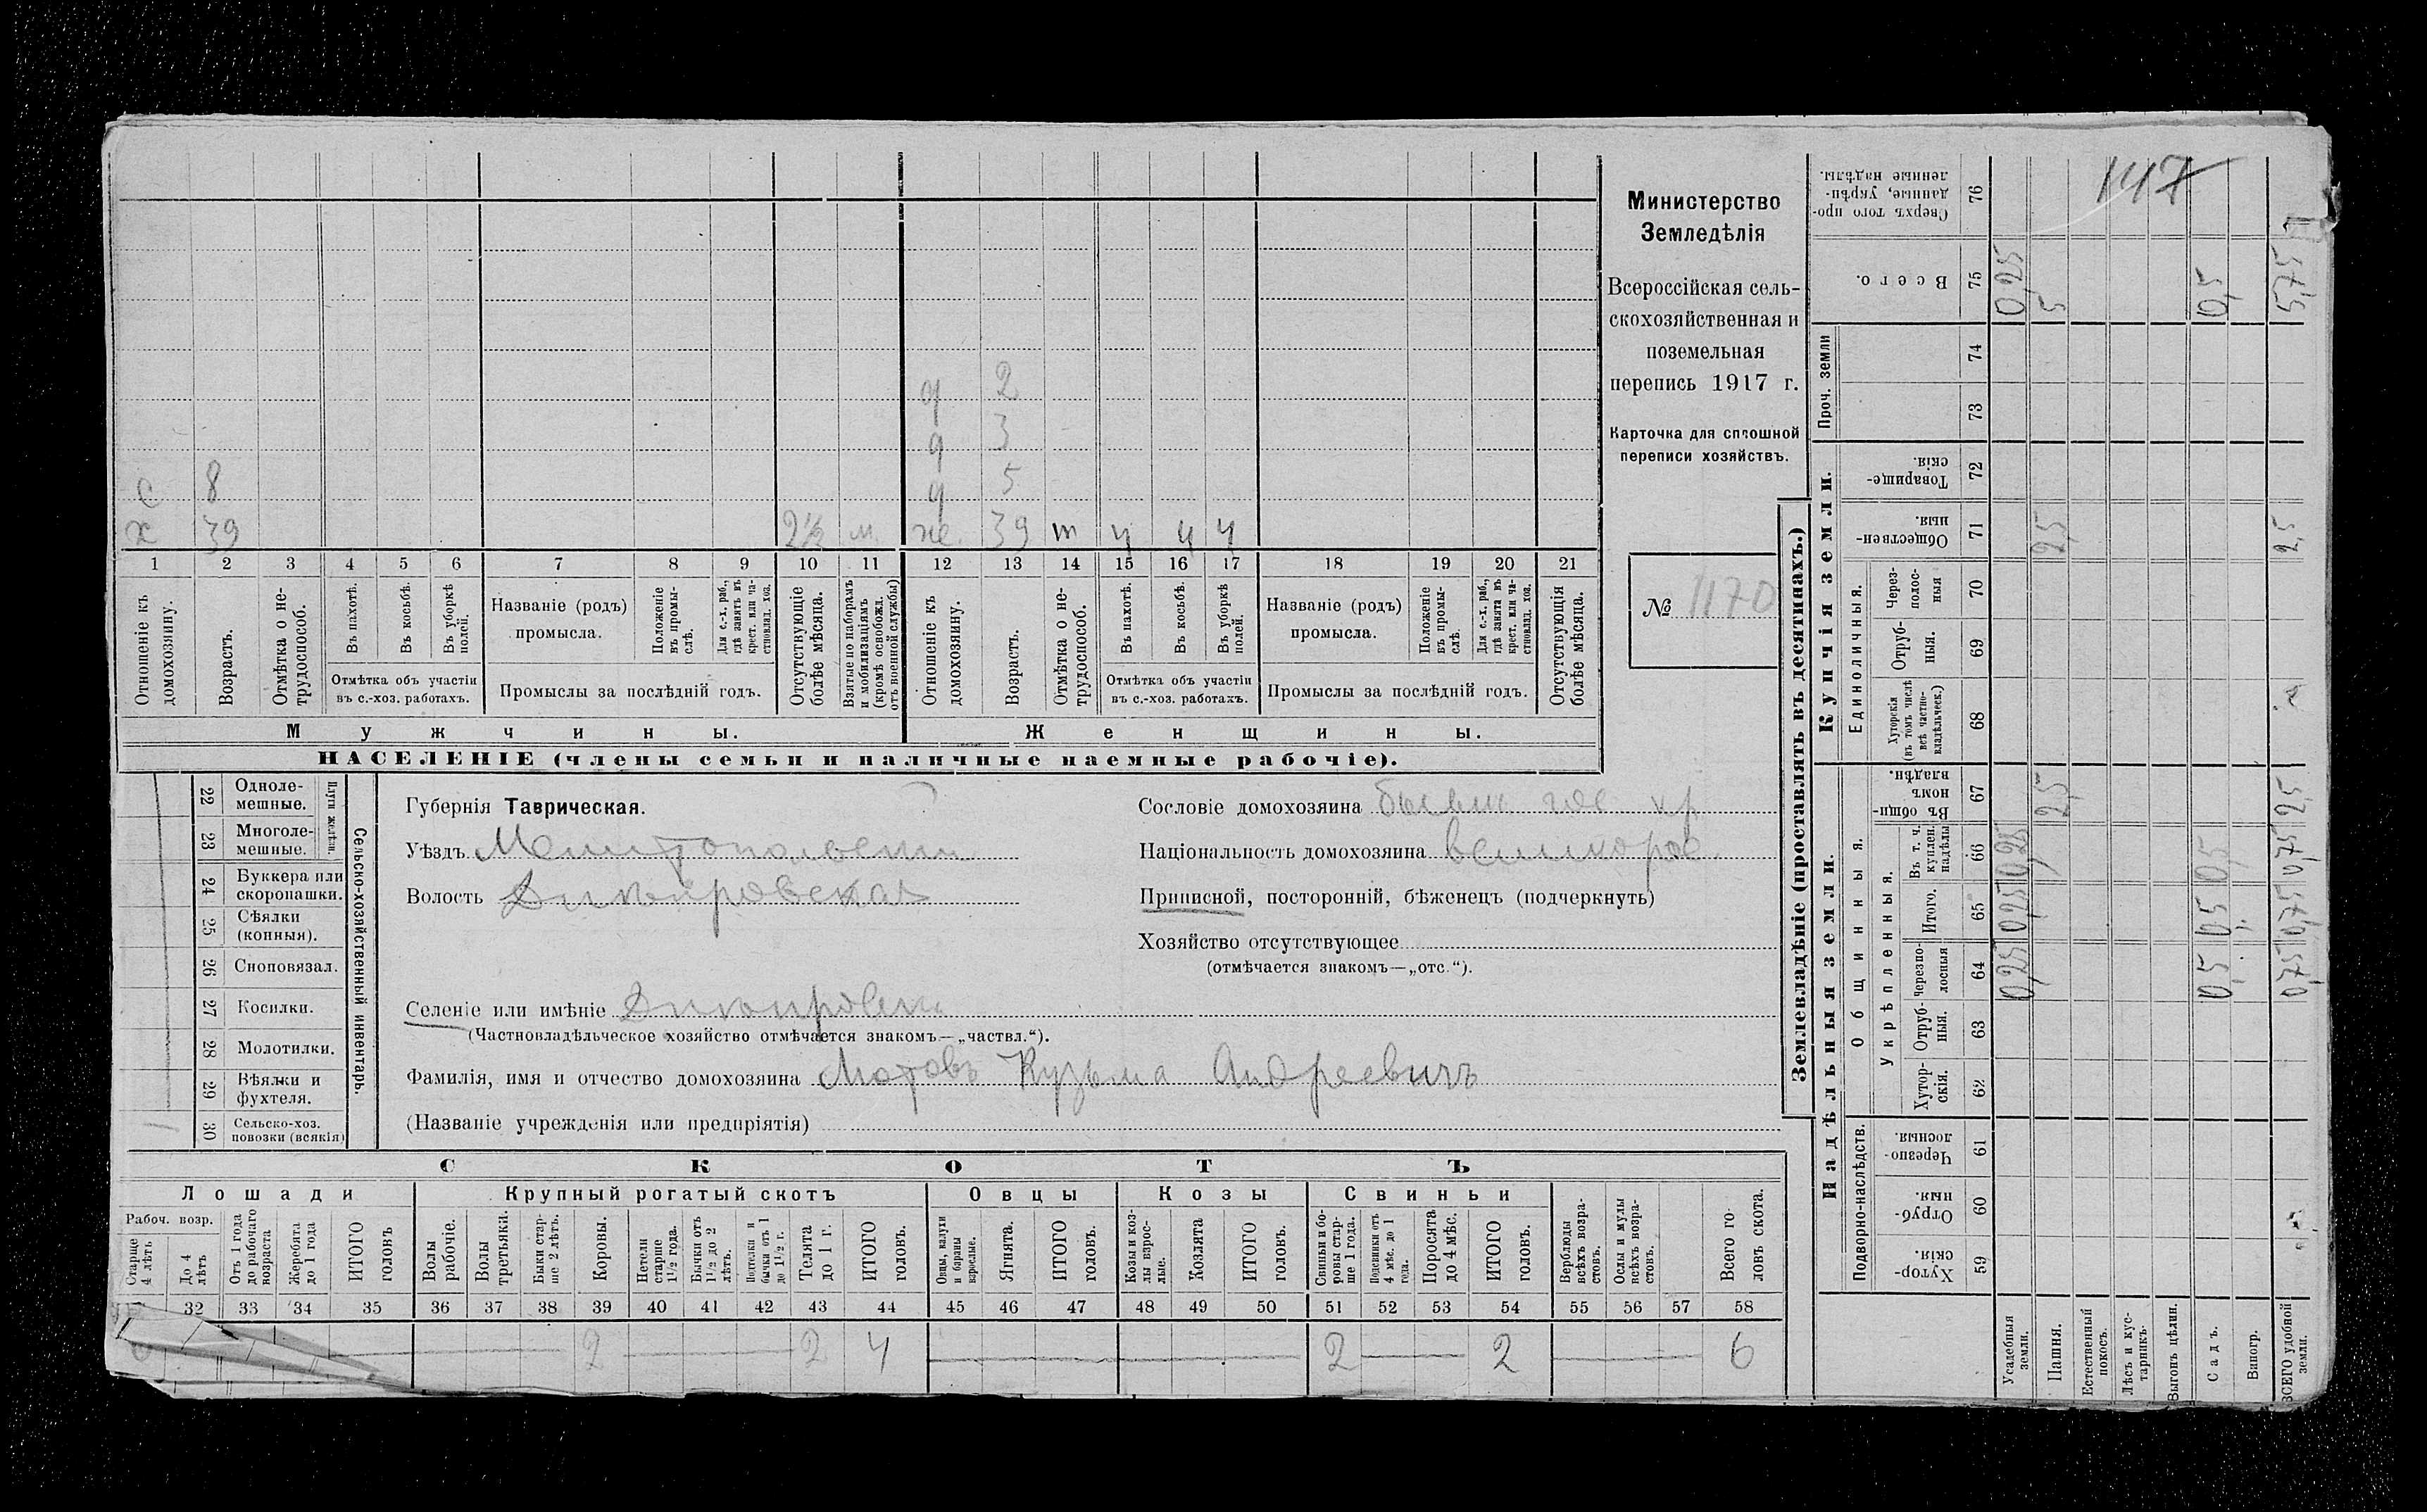 147
Министерство
Земледѣлія
Всероссійская сель-
скохозяйственная и
поземельная
перепись 1917 г.
Карточка для сплошной
переписи хозяйствъ.
№ 1170
д 2
д 3
с 8 д 5
х 39 2½ м. же. 39 т ч ч ч
1 2 3 4 5 6 7 8 9 10 11 12 13 14 15 16 17 18 19 20 21
Отношеніе къ домохозяину.
Возрастъ.
Отмѣтка о не-трудоспособ.
Въ пахотѣ.
Въ косьбѣ.
Въ уборкѣ полей.
Отмѣтка объ участіи
въ с.-хоз. работахъ.
Названіе (родъ)
промысла.
Положеніе въ промы-слѣ.
Для с.-х. раб., гдѣ занятъ въ крест. или ча-стновлад. хоз.
Промыслы за послѣдній годъ.
Отсутствующіе болѣе мѣсяца.
Взятые по наборамъ и мобилизаціямъ (кромѣ освобожд. отъ военной службы)
Отношеніе къ домохозяину.
Возрастъ.
Отмѣтка о не-трудоспособ.
Въ пахотѣ.
Въ косьбѣ.
Въ уборкѣ полей.
Отмѣтка объ участіи
въ с.-хоз. работахъ.
Названіе (родъ)
промысла.
Положеніе въ промы-слѣ.
Для с.-х. раб., гдѣ занята въ крест. или ча-стновлад. хоз.
Промыслы за послѣдній годъ.
Отсутствующія болѣе мѣсяца.
Мужчины. Женщины.
НАСЕЛЕНІЕ (члены семьи и наличные наемные рабочіе).
Сельско-хозяйственный инвентарь.
Плуги желѣзн.
22 Одноле-мешные.
23 Многоле-мешные.
24 Буккера или скоропашки.
25 Сѣялки (конныя).
26 Сноповязал.
27 Косилки.
28 Молотилки.
29 Вѣялки и фухтеля.
1 30 Сельско-хоз. повозки (всякія)
Губернія Таврическая.
Уѣздъ Мелитопольскій
Волость
Селеніе или имѣніе
(Частновладѣльческое хозяйство отмѣчается знакомъ—„частвл.“).
Фамилія, имя и отчество домохозяина Мотовъ Кузьма Андреевичъ
(Названіе учрежденія или предпріятія)
Сословіе домохозяина бывш гос кр
Національность домохозяина великорос.
Приписной, посторонній, бѣженецъ (подчеркнуть)
Хозяйство отсутствующее
(отмѣчается знакомъ—„отс.“).
СКОТЪ
Лошади Крупный рогатый скотъ Овцы Козы Свиньи
Рабоч. возр.
Старше 4 лѣтъ
До 4 лѣтъ
Отъ 1 года до рабочаго возраста
Жеребята до 1 года
ИТОГО головъ
Волы рабочіе.
Волы третьяки.
Быки стар-ше 2 лѣтъ.
Коровы.
Нетели старше 1½ года.
Бычки отъ 1½ до 2 лѣтъ.
Подтелки и бычки отъ 1 до 1½ г.
Телята до 1 г.
ИТОГО головъ.
Овцы, валухи и бараны взрослые.
Ягнята.
ИТОГО головъ.
Козы и коз-лы взрос-лые.
Козлята
ИТОГО головъ.
Свиньи и бо-ровы стар-ше 1 года.
Подсвинки отъ 4 мѣс. до 1 года.
Поросята до 4 мѣс.
ИТОГО головъ.
Верблюды всѣхъ возра-стовъ.
Ослы и мулы всѣхъ возра-стовъ.
Всего го-ловъ скота.
32 33 34 35 36 37 38 39 40 41 42 43 44 45 46 47 48 49 50 51 52 53 54 55 56 57 58
2 2 4 2 2 6
Землевладѣніе (проставлять въ десятинахъ.)
Надѣльныя земли. Купчія земли. Проч. земли
Подворно-наслѣдств.
Общинныя.
Укрѣпленныя.
Единоличныя.
59 Хутор-скія.
60 Отруб-ныя.
61 Черезпо-лосныя.
62 Хутор-скія.
63 Отруб-ныя.
64 Черезпо-лосныя
65 Итого.
66 Въ т. ч. куплен. надѣлы
67 Въ общин-номъ владѣн.
68 Хуторскія (въ томъ числѣ всѣ частно-владѣльческ.)
69 Отруб-ныя.
70 Через-полос-ныя
71 Обществен-ныя.
72 Товарище-скія.
73
74
75 Всего.
76 Сверхъ того про-данные, укрѣп-ленные надѣлы.
Усадебныя земли. 0,25 0,25 0,25 0,25
Пашня. 2,5 2,5 5
Естественный покосъ.
Лѣсъ и кус-тарникъ.
Выгонъ цѣлин.
Садъ. 0,5 0,5 0,5 0,5
Виногр.
ВСЕГО удобной земли. 0,75 0,75 0,75 2,5 2,5 5,75